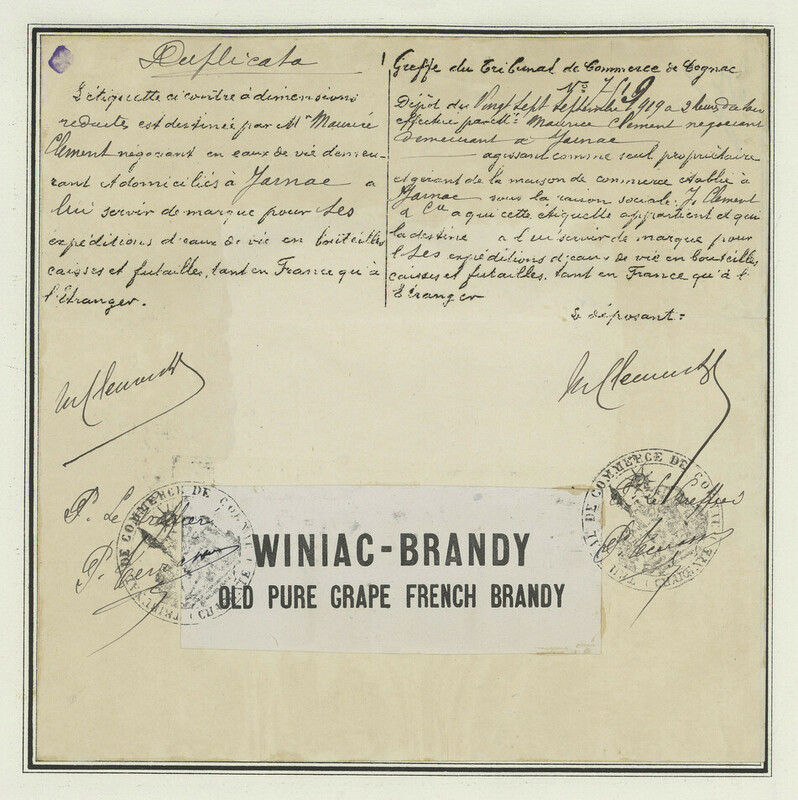 Duplicata
L'étiquette ci contre à dimensions
reduites est destinée par Mr Maurice
Clement négociant en eaux de vie demeu-
rant et domiciliés à Jarnac a
lui servir de marque pour ses
expéditions d'eaux de vie en bouteilles
caisses et futailles, tant en France qu'à
l'étranger.
Greffe du Tribunal de Commerce de Cognac
No
Dépôt du Vingt Sept Septembre 1919 a 2 heures
effectué par Mr Maurice Clement negociant
demeurant à Jarnac
agissant comme seul propriétaire
et gérant de la maison de commerce établie à
Jarnac sous la raison sociale: J. Clement
& Cie a qui cette étiquette appartient et qui
la destine a lui servir de marque pour
ses expéditions d'eaux de vie en bouteilles
caisses et futailles, tant en France qu'à l'
Etranger
Le déposant =
M Clement
M Clement
P. Le Greffier
P. Le Greffier
TRIBUNAL DE COMMERCE DE COGNAC (CHARENTE)
DE COMMERCE DE COGNAC (CHARENTE)
WINIAC-BRANDY
OLD PURE GRAPE FRENCH BRANDY